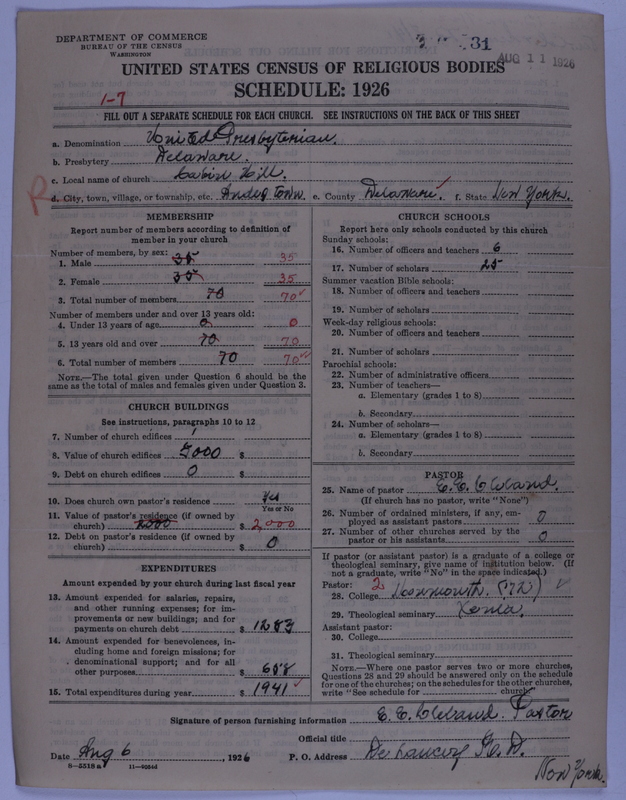 DEPARTMENT OF COMMERCE
BUREAU OF THE CENSUS
WASHINGTON
31
AUG 11 1926
UNITED STATES CENSUS OF RELIGIOUS BODIES
SCHEDULE: 1926
1-7
FILL OUT A SEPARATE SCHEDULE FOR EACH CHURCH. SEE INSTRUCTIONS ON THE BACK OF THIS SHEET
a. Denomination United Presbyterian.
b. Presbytery Delaware.
c. Local name of church Cabin Hill.
R
d. City, town, village, or township, etc. Andes Town. e. County Delaware. f. State New York.
MEMBERSHIP
Report number of members according to definition of
member in your church
Number of members, by sex:
1. Male 35 35
2. Female 35 35
3. Total number of members 70 70
Number of members under and over 13 years old:
4. Under 13 years of age 0 0
5. 13 years old and over 70 70
6. Total number of members 70 70
NOTE.—The total given under Question 6 should be the
same as the total of males and females given under Question 3.
CHURCH BUILDINGS
See instructions, paragraphs 10 to 12
7. Number of church edifices 1
8. Value of church edifices 5000 $
9. Debt on church edifices 0 $
10. Does church own pastor's residence Yes
Yes or No
11. Value of pastor's residence (if owned by
church) 2000 $ 2,000
12. Debt on pastor's residence (if owned by
church) $ 0
EXPENDITURES
Amount expended by your church during last fiscal year
13. Amount expended for salaries, repairs,
and other running expenses; for im-
provements or new buildings; and for
payments on church debt $ 1283
14. Amount expended for benevolences, in-
cluding home and foreign missions; for
denominational support; and for all
other purposes $ 658
15. Total expenditures during year $ 1941
CHURCH SCHOOLS
Report here only schools conducted by this church
Sunday schools:
16. Number of officers and teachers 6
17. Number of scholars 25
Summer vacation Bible schools:
18. Number of officers and teachers
19. Number of scholars
Week-day religious schools:
20. Number of officers and teachers
21. Number of scholars
Parochial schools:
22. Number of administrative officers
23. Number of teachers—
a. Elementary (grades 1 to 8)
b. Secondary
24. Number of scholars—
a. Elementary (grades 1 to 8)
b. Secondary
PASTOR
25. Name of pastor E. E. Cleland.
(If church has no pastor, write "None")
26. Number of ordained ministers, if any, em-
ployed as assistant pastors 0
27. Number of other churches served by the
pastor or his assistants 0
If pastor (or assistant pastor) is a graduate of a college or
theological seminary, give name of institution below. (If
not a graduate, write "No" in the space indicated.)
Pastor: 2
28. College Monmouth.
29. Theological seminary Xenia.
Assistant pastor:
30. College
31. Theological seminary
NOTE.—Where one pastor serves two or more churches,
Questions 28 and 29 should be answered only on the schedule
for one of the churches; on the schedules for the other churches,
write "See schedule for church."
Signature of person furnishing information E. E. Cleland. Pastor
Official title
Date Aug 6, 1926 P. O. Address Delancey R. D.
8-5518a 11-9054d
New York.